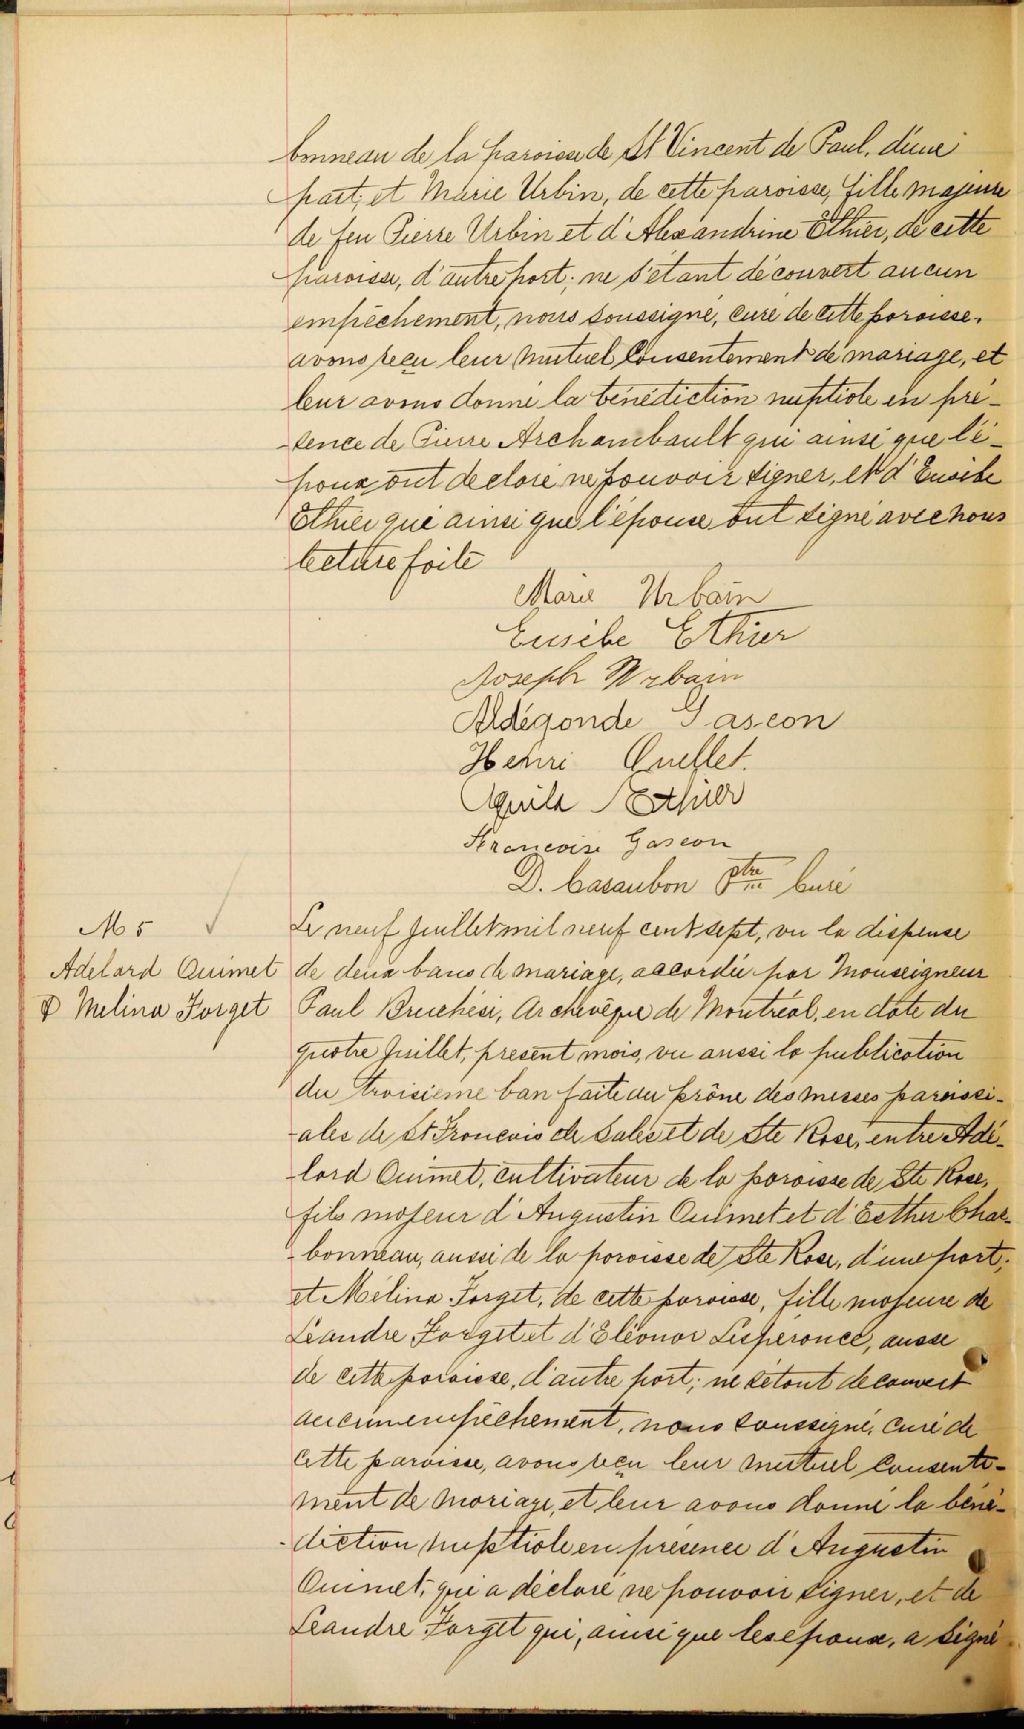 bonneau de la paroisse de St Vincent de Paul, d'une
part, et Marie Urbin, de cette paroisse, fille majeure
de feu Pierre Urbin et d'Alexandrine Ethier, de cette
paroisse, d'autre part; ne s'étant découvert aucun
empêchement, nous soussigné, curé de cette paroisse,
avons reçu leur mutuel consentement de mariage, et
leur avons donné la bénédiction nuptiale en pré-
-sence de Pierre Archambault qui ainsi que l'é-
poux, ont declaré ne pouvoir signer, et d'Eusèbe
Ethier qui ainsi que l'épouse ont signé avec nous
lecture faite
Marie Urbain
Eusèbe Ethier
Joseph Urbain
Aldégonde Gascon
Henri Ouellet.
Aquila Ethier
Francoise Gascon
D. Casaubon Ptre Curé
M 5
Adelard Ouimet
& Melina Forget
Le neuf Juillet mil neuf cent sept, vu la dispense
de deux bans de mariage, accordée par Monseigneur
Paul Bruchési, Archevêque de Montréal, en date du
quatre Juillet, present mois, vu aussi la publication
du troisieme ban faite au prône des messes paroissi-
-ales de St Francois de Sales et de Ste Rose, entre Adé-
-lard Ouimet, cultivateur de la paroisse de Ste Rose,
fils majeur d'Augustin Ouimet et d'Esther Char-
-bonneau, aussi de la paroisse de Ste Rose, d'une part;
et Mélina Forget, de cette paroisse, fille majeure de
Léandre Forget et d'Eléonor Lespérance, aussi
de cette paroisse, d'autre part; ne s'étant decouvert
aucun empêchement, nous soussigné, curé de
cette paroisse, avons reçu leur mutuel consente-
ment de mariage, et leur avons donné la béné-
-diction nuptiale en présence d'Augustin
Ouimet, qui a déclaré ne pouvoir signer, et de
Leandre Forget qui, ainsi que les epoux, a signé